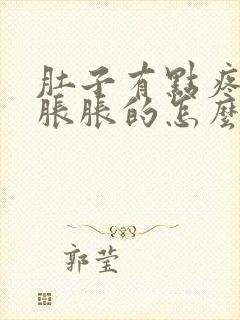 肚子有點疼
脹脹的怎麼
郭莹